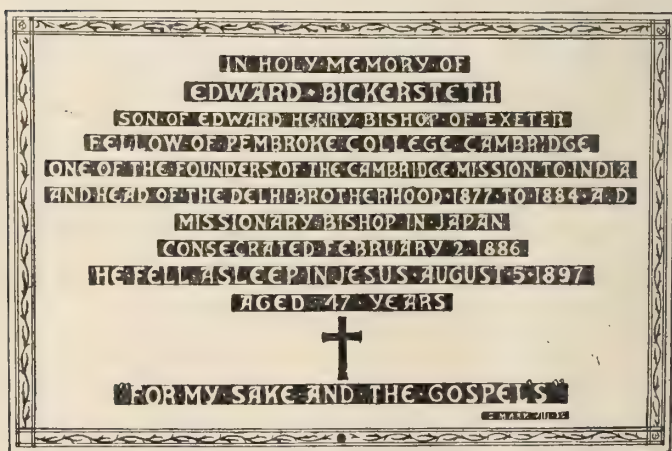 IN·HOLY·MEMORY·OF
EDWARD·BICKERSTETH
SON·OF·EDWARD·HENRY·BISHOP·OF·EXETER
FELLOW·OF·PEMBROKE·COLLEGE·CAMBRIDGE
ONE·OF·THE·FOUNDERS·OF·THE·CAMBRIDGE·MISSION·TO·INDIA
AND·HEAD·OF·THE·DELHI·BROTHERHOOD·1877·TO·1884·A·D
MISSIONARY·BISHOP·IN·JAPAN
CONSECRATED·FEBRUARY·2·1886
HE·FELL·ASLEEP·IN·JESUS·AUGUST·5·1897
AGED·47·YEARS
"FOR·MY·SAKE·AND·THE·GOSPEL'S"
S MARK VIII